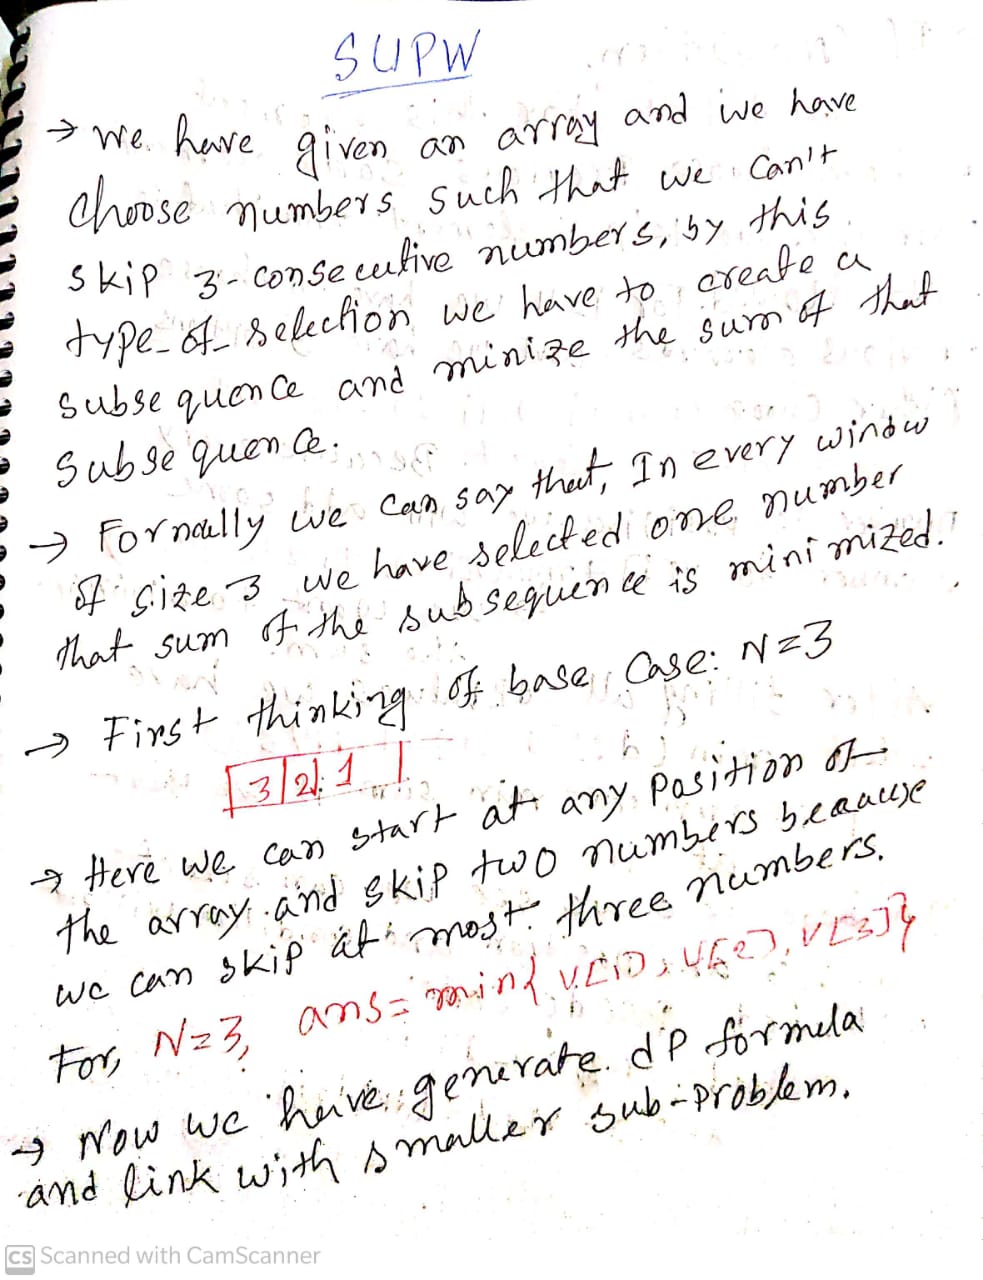 SUPW
→ we have given an array and we have
choose numbers such that we can't
skip 3-consecutive numbers, by this
type of selection we have to create a
subsequence and minize the sum of that
subsequence.
→ Formally we can say that, In every window
of size 3 we have selected one number
that sum of the subsequence is minimized.
→ First thinking of base case: N=3
3 2 1
→ Here we can start at any position of
the array and skip two numbers beacause
we can skip at most three numbers.
For, N=3, ans= min{ v[1], v[2], v[3]}
→ Now we have generate dP formula
and link with smaller sub-problem.
CS Scanned with CamScanner